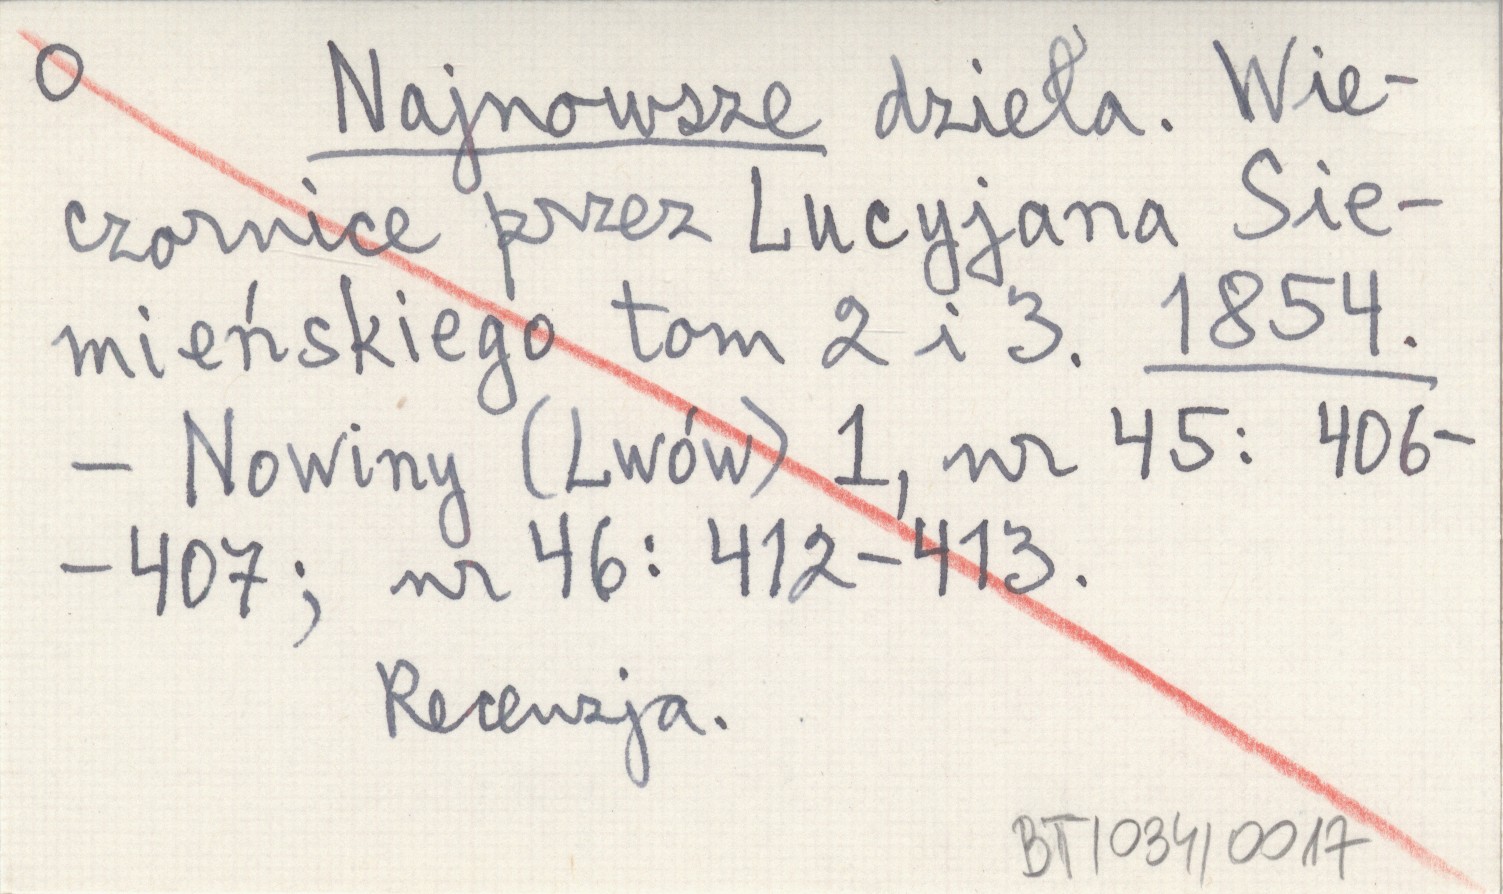 O Najnowsze dzieła. Wie-
czornice przez Lucyjana Sie-
mieńskiego tom 2 i 3. 1854.
- Nowiny (Lwów) 1, nr 45: 406-
-407; nr 46: 412-413.
Recenzja.
BT/034/0017